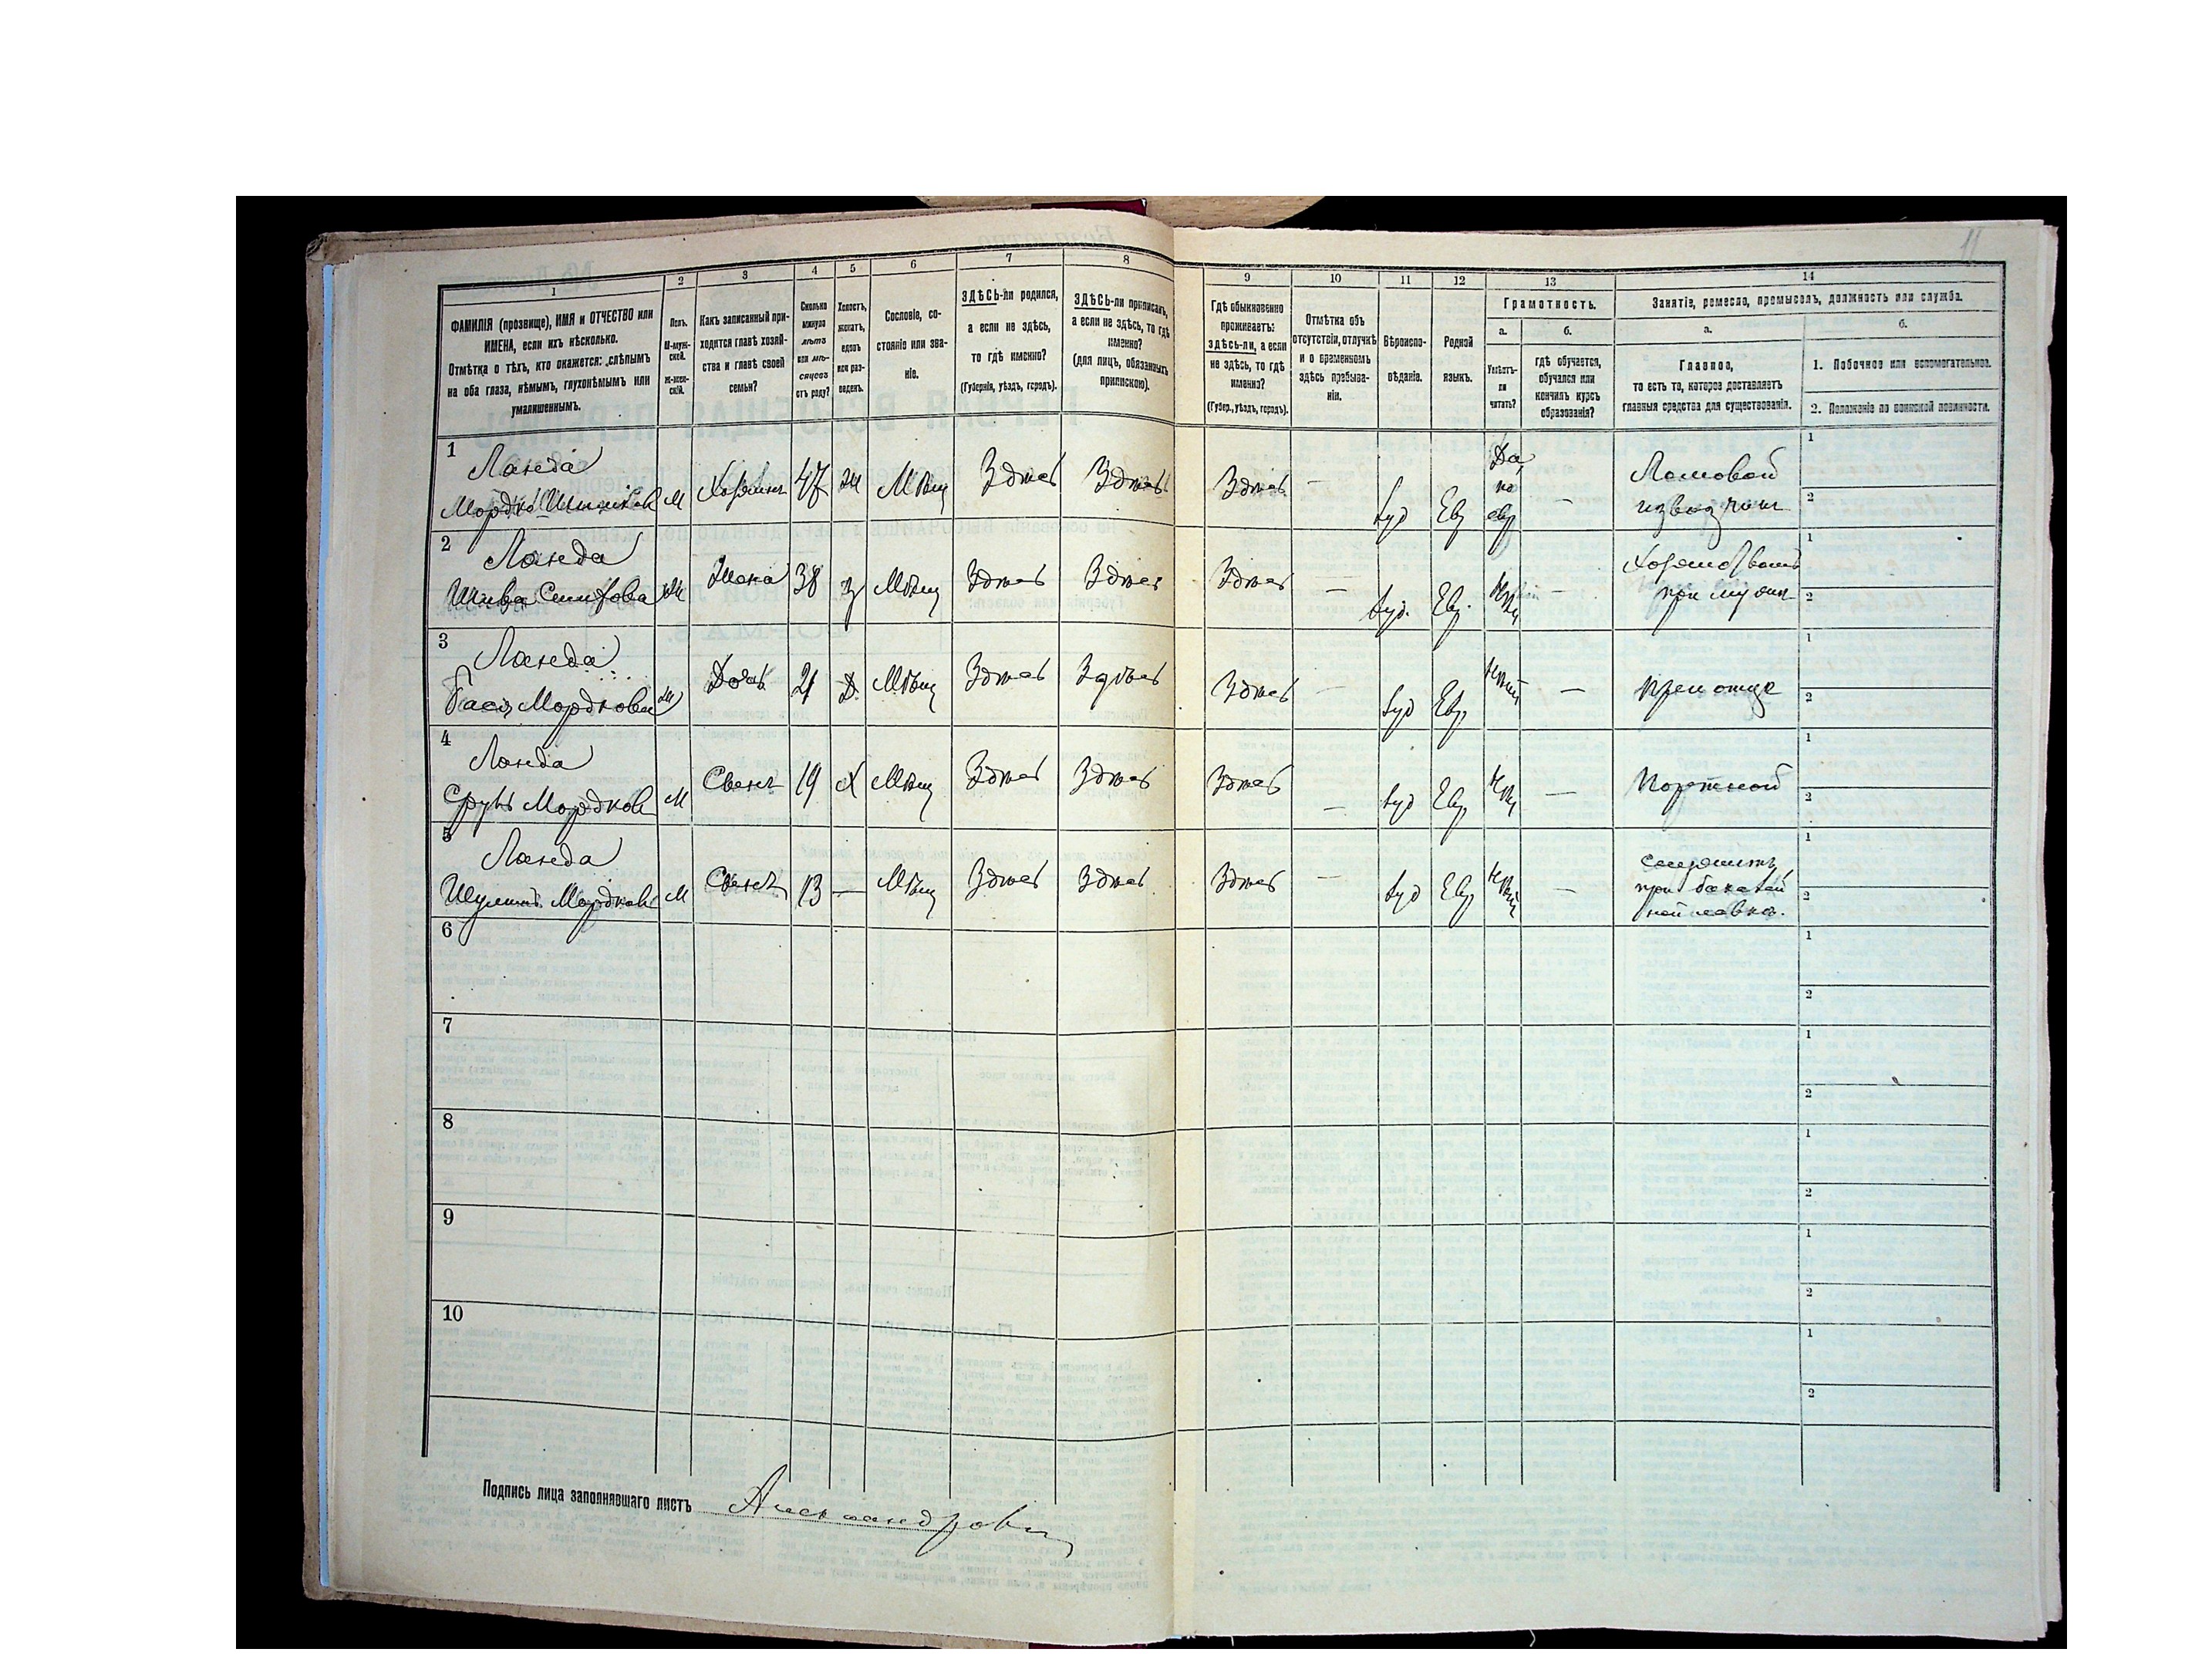 11
1
2
3
4
5
6
7
8
9
10
11
12
13
14
ФАМИЛІЯ (прозвище), ИМЯ и ОТЧЕСТВО или
ИМЕНА, если ихъ нѣсколько.
Отмѣтка о тѣхъ, кто окажется: слѣпымъ
на оба глаза, нѣмымъ, глухонѣмымъ или
умалишеннымъ.
Полъ.
М-муж-
ской.
Ж-жен-
скій.
Какъ записанный при-
ходится главѣ хозяй-
ства и главѣ своей
семьи?
Сколько
минуло
лѣтъ
или мѣ-
сяцевъ
отъ роду?
Холостъ,
женатъ,
вдовъ
или раз-
веденъ.
Сословіе, со-
стояніе или зва-
ніе.
ЗДѢСЬ-ли родился,
а если не здѣсь,
то гдѣ именно?
(Губернія, уѣздъ, городъ).
ЗДѢСЬ-ли приписанъ,
а если не здѣсь, то гдѣ
именно?
(для лицъ, обязанныхъ
припискою).
Гдѣ обыкновенно
проживаетъ:
здѣсь-ли, а если
не здѣсь, то гдѣ
именно?
(Губер., уѣздъ, городъ).
Отмѣтка объ
отсутствіи, отлучкѣ
и о временномъ
здѣсь пребыва-
ніи.
Вѣроиспо-
вѣданіе.
Родной
языкъ.
Грамотность.
а.
б.
Умѣетъ-
ли
читать?
гдѣ обучается,
обучался или
кончилъ курсъ
образованія?
Занятіе, ремесло, промыселъ, должность или служба.
а.
б.
Главное,
то есть то, которое доставляетъ
главныя средства для существованія.
1. Побочное или вспомогательное.
2. Положеніе по воинской повинности.
1
Ланда
Мордко
М
Хозяинъ
47
Ж
Мѣщ
Здѣсь
Здѣсь
Здѣсь
—
Іуд
Евр
Да,
по
евр
—
Ломовой
извозчикъ
1
2
2
Ланда
Ж
Жена
38
З
Мѣщ
Здѣсь
Здѣсь
Здѣсь
—
Іуд.
Евр.
—
при мужѣ
1
2
3
Ланда
Бася Мордкова
Ж
Дочь
21
Д.
Мѣщ
Здѣсь
Здѣсь
Здѣсь
—
Іуд
Евр
—
При отцѣ
1
2
4
Ланда
Сруль Мордков
М
Сынъ
19
Х
Мѣщ
Здѣсь
Здѣсь
Здѣсь
—
Іуд
Евр
—
Портной
1
2
5
Ланда
Мордков
М
Сынъ
13
—
Мѣщ
Здѣсь
Здѣсь
Здѣсь
—
Іуд
Евр
—
при бакалей
ной лавкѣ.
1
2
6
1
2
7
1
2
8
1
2
9
1
2
10
1
2
Подпись лица заполнявшаго листъ